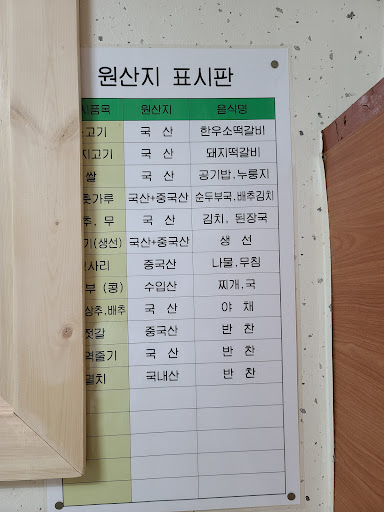 원산지 표시판
품목 원산지 음식명
고기 국 산 한우소떡갈비
고기 국 산 돼지떡갈비
쌀 국 산 공기밥.누룽지
가루 국산+중국산 순두부국,배추김치
추, 무 국 산 김치, 된장국
기(생선) 국산+중국산 생 선
사리 중국산 나물.무침
부 (콩) 수입산 찌개.국
상추,배추 국 산 야 채
젓갈 중국산 반 찬
역줄기 국 산 반 찬
멸치 국내산 반 찬